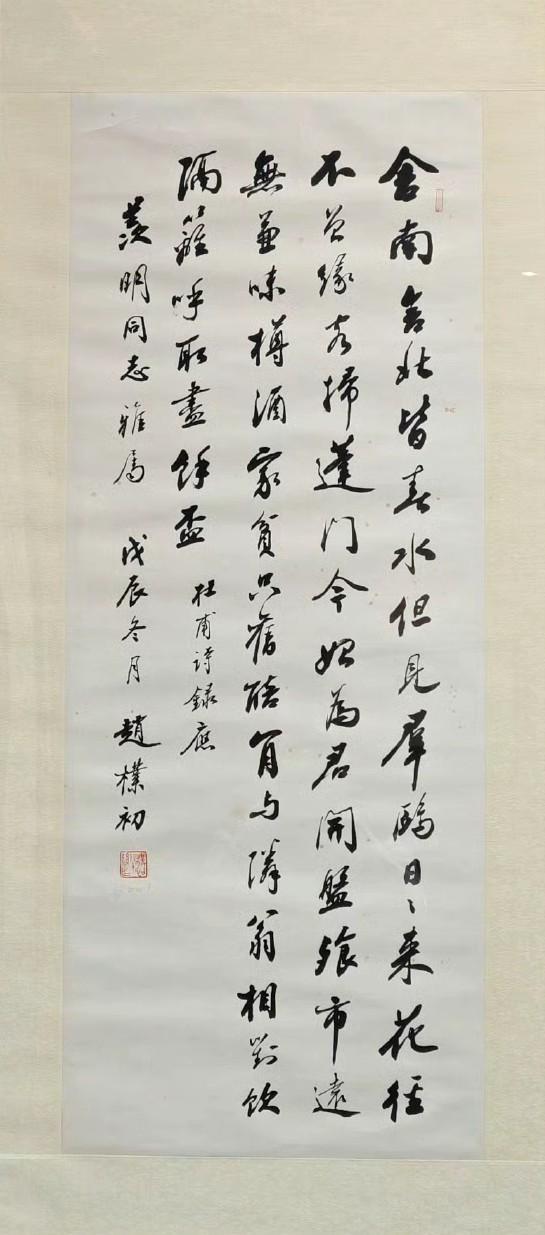 舍南舍北皆春水但見羣鷗日〻來花徑
不曾緣客掃蓬門今始為君開盤飧市遠
無兼味樽酒家貧只舊醅肯与隣翁相對飲
隔籬呼取盡餘盃 杜甫詩錄應
羨明同志雅属 戊辰冬月 趙樸初